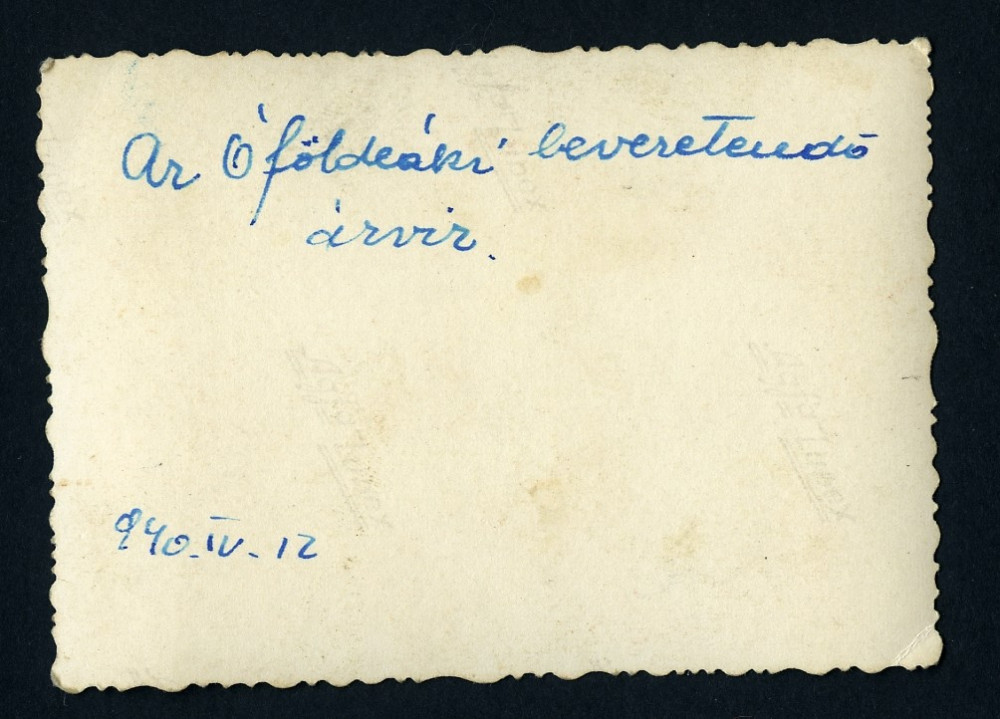 Az Óföldeáki bevezetendő
árvíz.
940. IV. 12